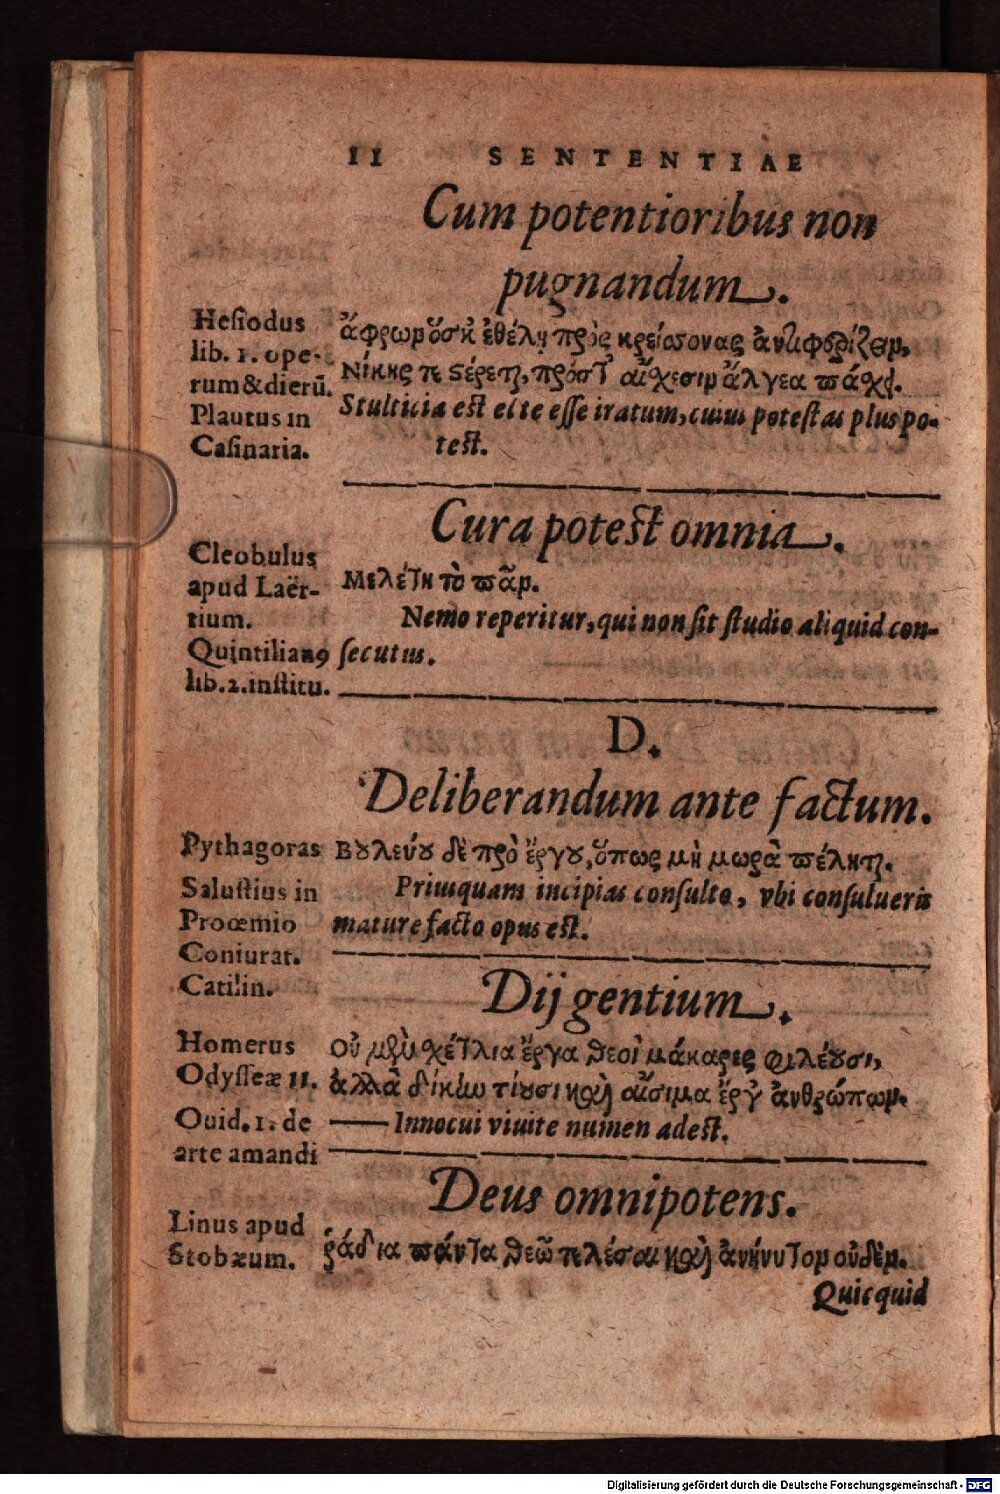 II SENTENTIAE
Cum potentioribus non
pugnandum.
Hesiodus
lib. 1. ope-
rum & dierū.
Plautus in
Casinaria.
ἄφρων δ' ὅς κ' ἐθέλῃ πρὸς κρείσσονας ἀντιφερίζειν,
Νίκης τε στέρεται, πρός τ' αἴσχεσιν ἄλγεα πάσχει.
Stultitia est ei te esse iratum, cuius potestas plus po-
test.
Cura potest omnia.
Cleobulus
apud Laër-
tium.
Quintilianꝰ
lib. 2. institu.
Μελέτη τὸ πᾶν.
Nemo reperitur, qui non sit studio aliquid con-
secutus.
D.
Deliberandum ante factum.
Pythagoras
Salustius in
Proœmio
Coniurat.
Catilin.
Βουλεύου δὲ πρὸ ἔργου, ὅπως μὴ μωρὰ πέληται.
Priusquam incipias consulto, vbi consulueris
mature facto opus est.
Dij gentium.
Homerus
Odysseæ 11.
Ouid. 1. de
arte amandi
Οὐ μὲν σχέτλια ἔργα θεοὶ μάκαρες φιλέουσι,
ἀλλὰ δίκην τίουσι καὶ αἴσιμα ἔργ' ἀνθρώπων.
— Innocui viuite numen adest.
Deus omnipotens.
Linus apud
Stobæum.
ῥάδια πάντα θεῷ τελέσαι καὶ ἀνήνυτον οὐδέν.
Quicquid
Digitalisierung gefördert durch die Deutsche Forschungsgemeinschaft - DFG